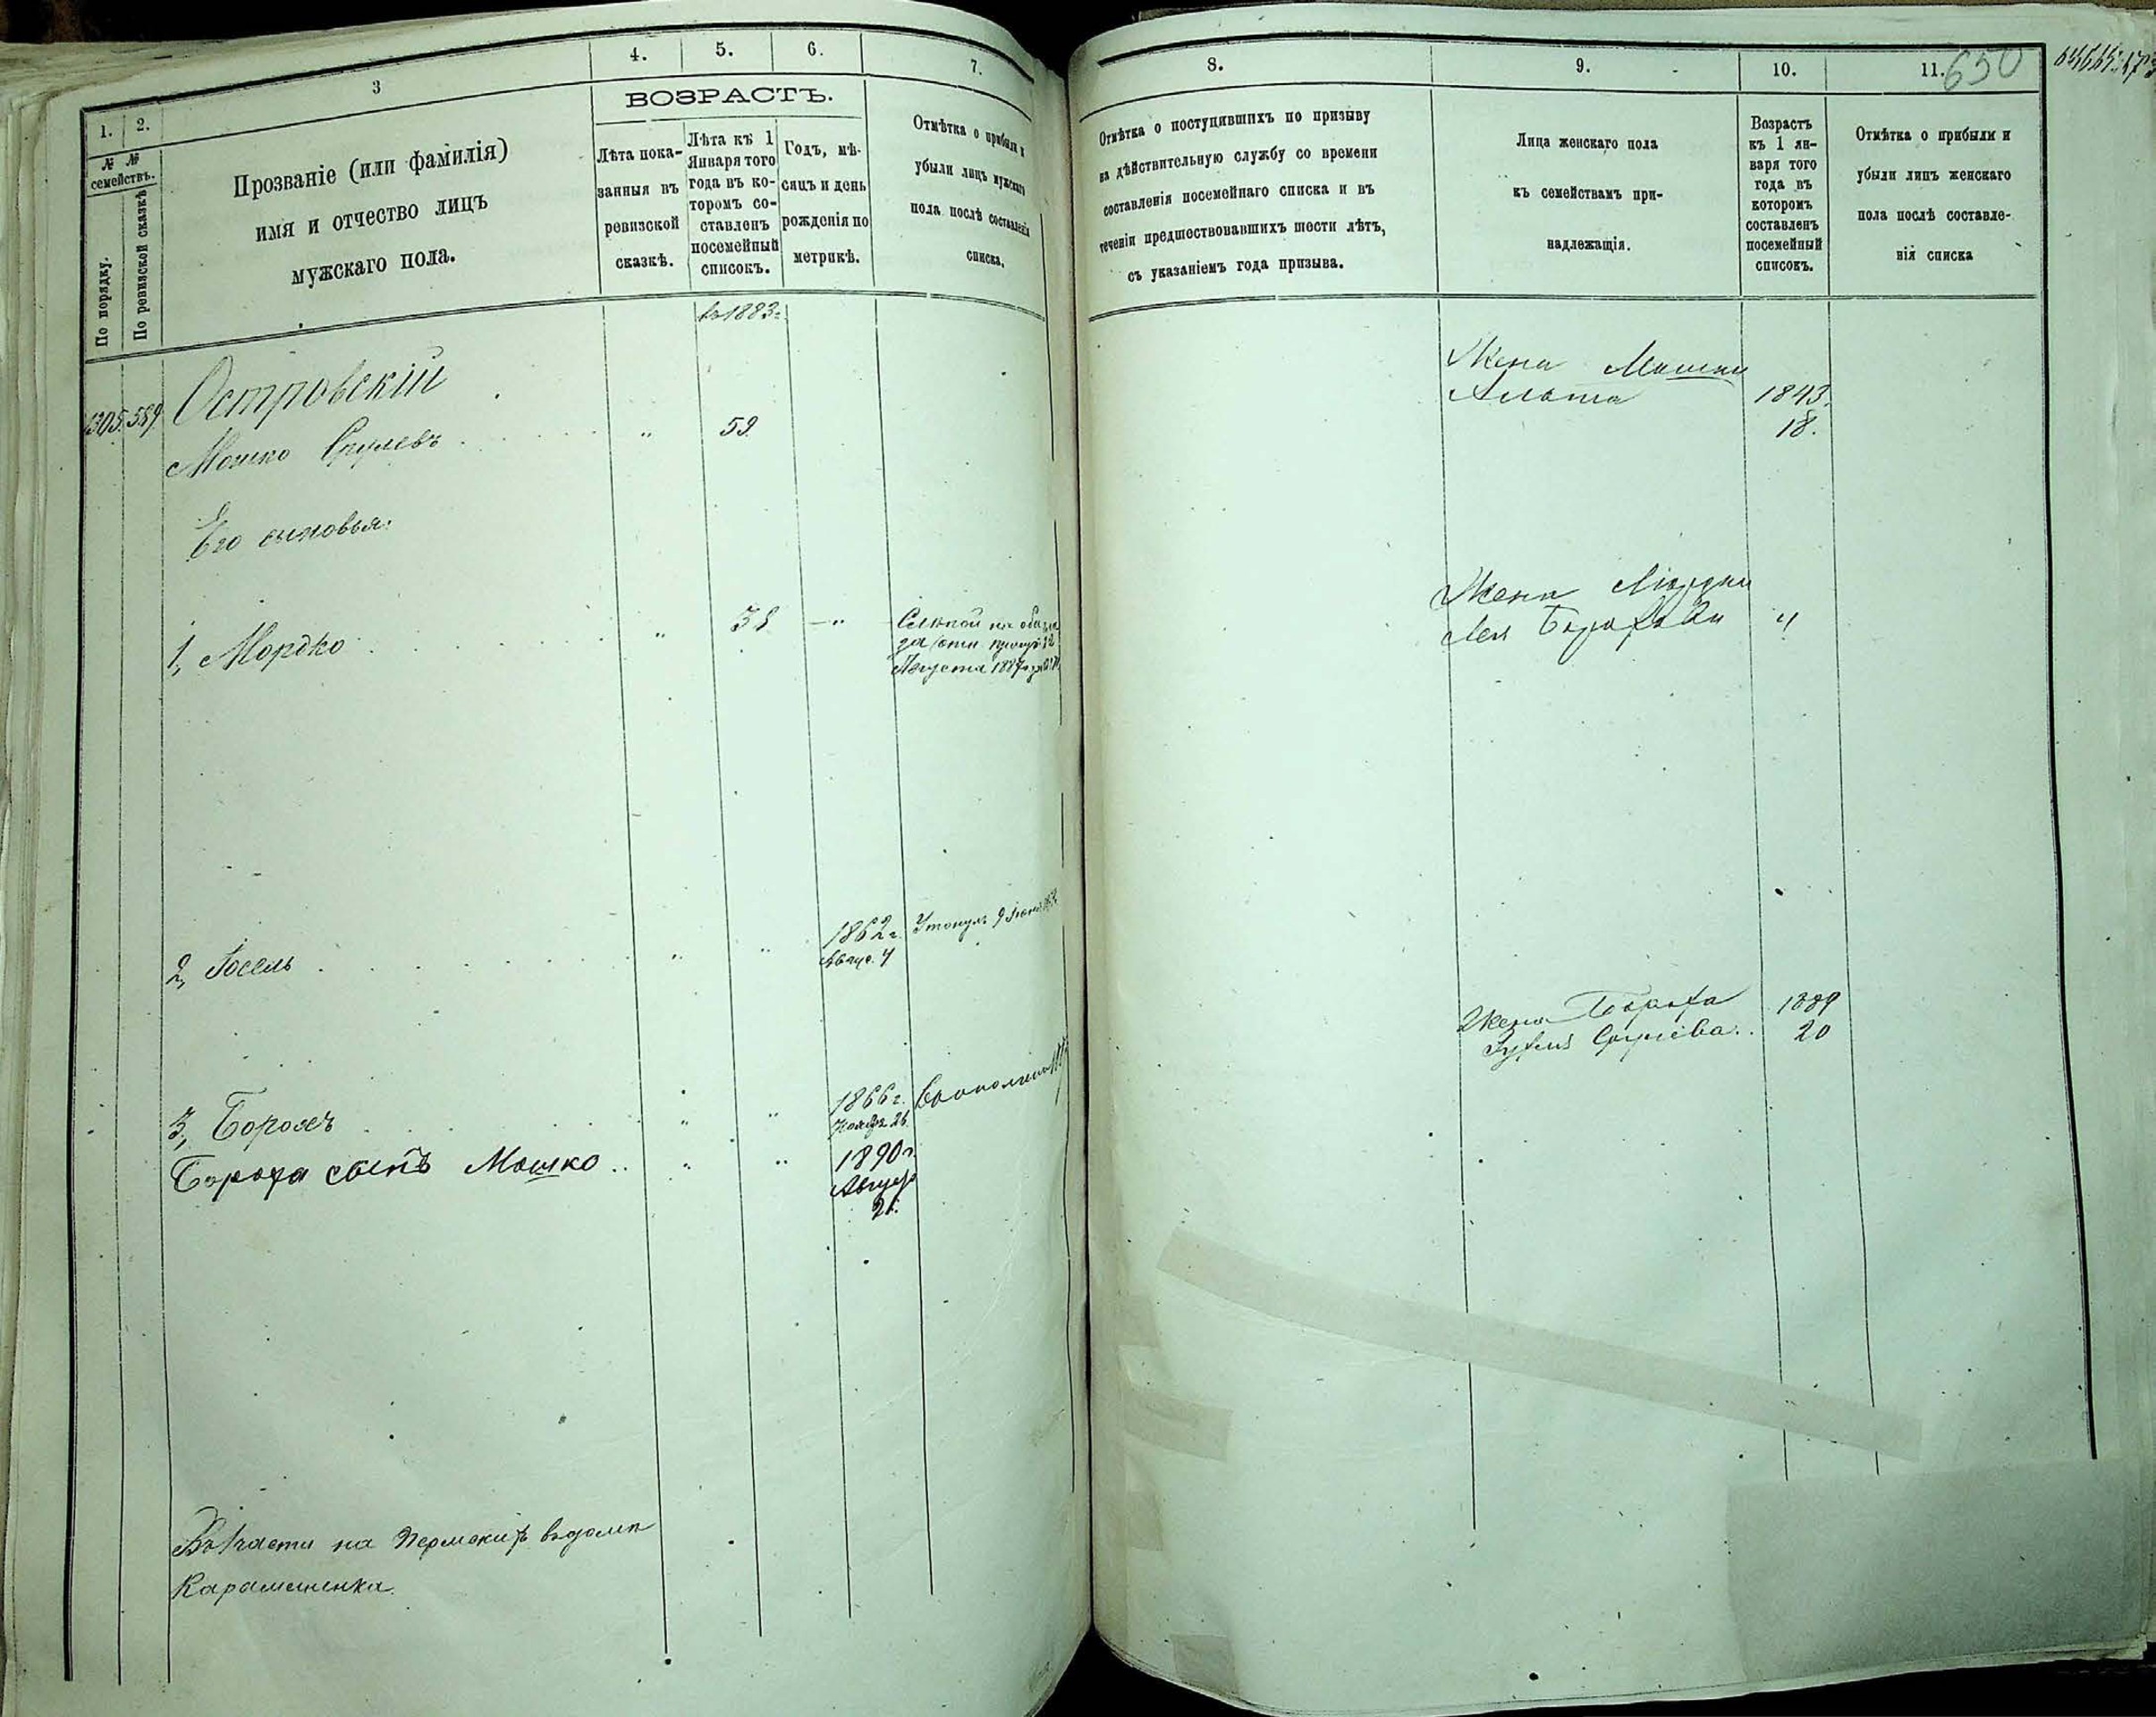 1.
2.
3
4.
5.
6.
7.
№ №
семействъ.
По порядку.
По ревизской сказкѣ
Прозваніе (или фамилія)
имя и отчество лицъ
мужскаго пола.
ВОЗРАСТЪ.
Лѣта пока-
занныя въ
ревизской
сказкѣ.
Лѣта къ 1
Января того
года въ ко-
торомъ со-
ставленъ
посемейный
списокъ.
Годъ, мѣ-
сяцъ и день
рожденія по
метрикѣ.
Отмѣтка о прибыли и
убыли лицъ мужскаго
пола послѣ составленія
списка.
къ 1883 г.
1305. 589
Островскій
Мошко Срулевъ " 59
Его сыновья:
1, Мордко " 38 — "
Слѣпой на оба
Августа 1887
2, Іосель " " 1862 г. Утонулъ 9
Авгус. 4
3, Борохъ " " 1866 г.
Ноября 26.
Бороха сынъ Мошко " " 1890 г.
Август
21.
на
8.
9.
10.
11.
650
Отмѣтка о поступившихъ по призыву
на дѣйствительную службу со времени
составленія посемейнаго списка и въ
теченіи предшествовавшихъ шести лѣтъ,
съ указаніемъ года призыва.
Лица женскаго пола
къ семействамъ при-
надлежащія.
Возрастъ
къ 1 ян-
варя того
года въ
которомъ
составленъ
посемейный
списокъ.
Отмѣтка о прибыли и
убыли лицъ женскаго
пола послѣ составле-
нія списка
Жена Мошки
1843.
18.
Жена Мордки
Лея
Жена Бороха 1889
Срулева 20